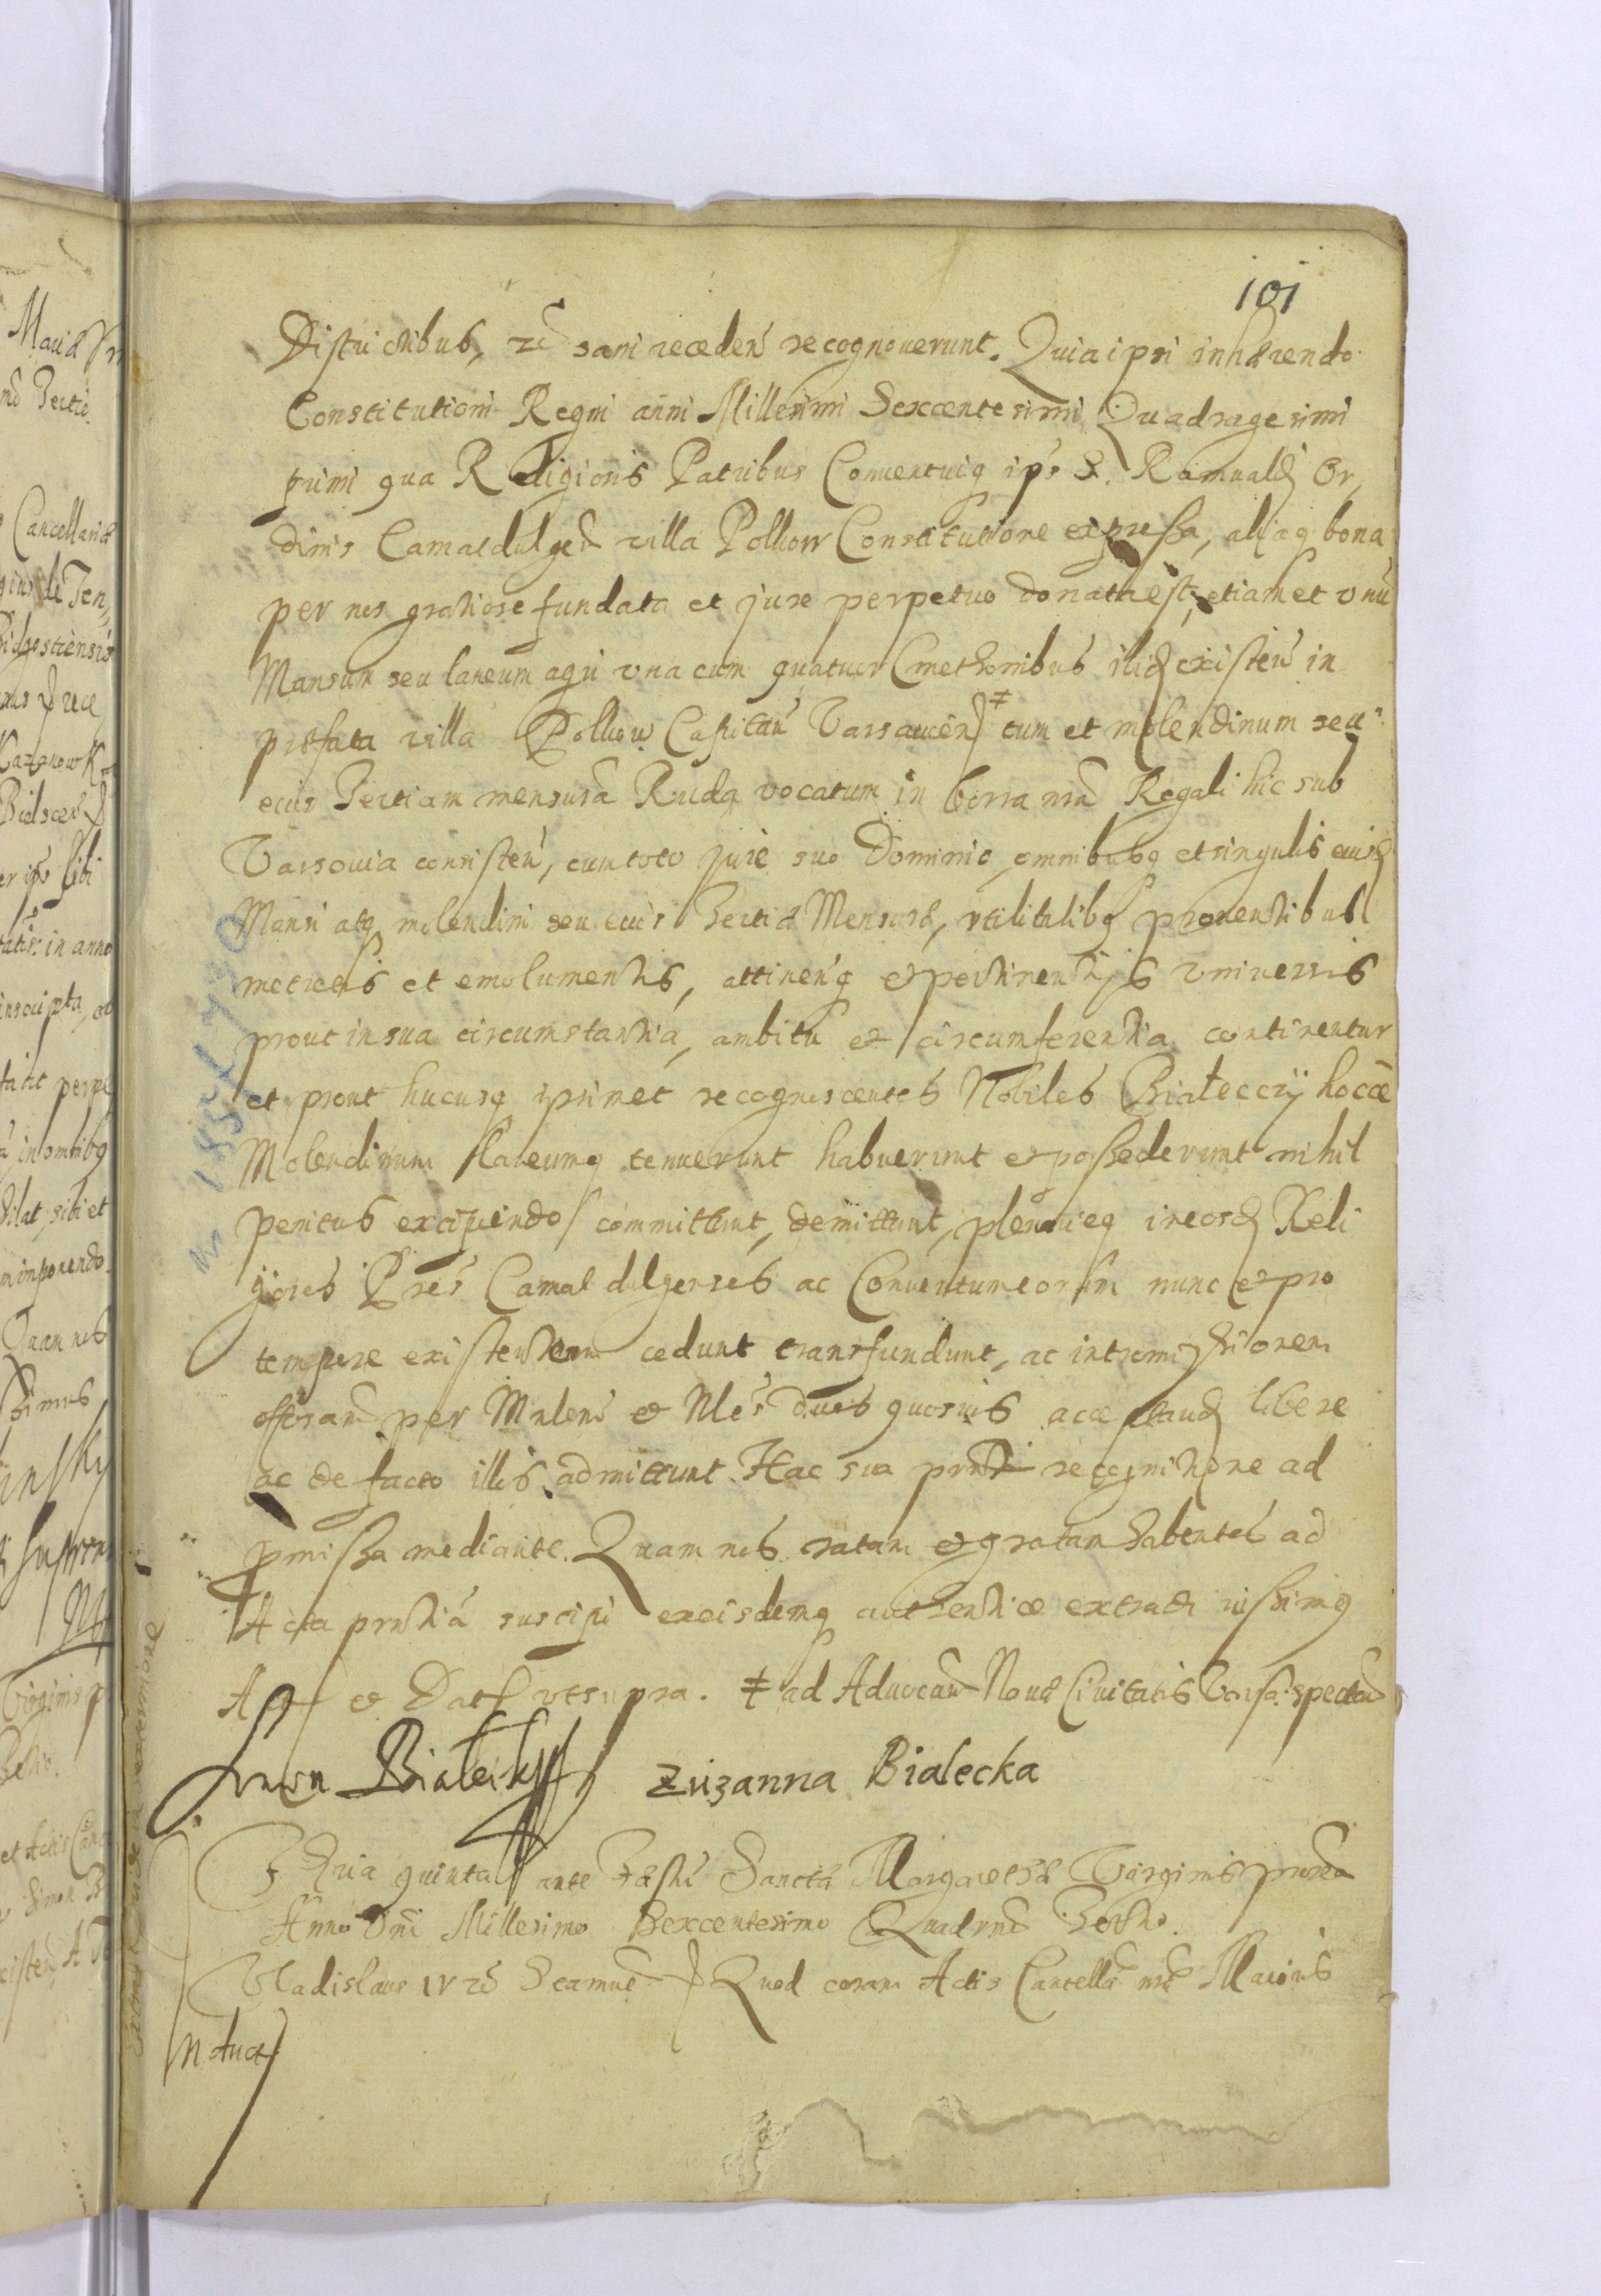 101
Districtibus, etc sani receden recognouerunt. Quia ipsi inhærendo
Constitutioni Regni anni Millesimi Sexcentesimi Quadragesimi
primi qua Religiosis Patribus Conuentuiq ips S. Romualdi Or,
dinis Camaldulgen villa Polkow Constitutione expressa, aliaq bona
per nos gratiose fundata et jure perpetuo donata est, etiam et vnu
Mansum seu laneum agri vna cum quatuor Cmethonibus ibid existen in
præfata villa Polkow Capitan Varsauien ‡ cum et molendinum seu
eius Tertiam mensura Ruda vocatum in bona nra Regali hic sub
Varsouia consisten, cum toto jure suo Dominio omnibusq et singulis eiusd
Mansi atq molendini seu eius Tertiæ Mensuræ, vtilitatibq prouentibus
metretis et emolumentis, attinenq et pertinentijs vniuersis
prout in sua circumstantia, ambitu et circumferentia continentur
et prout hucusq ipsimet recognoscentes Nobiles Białeccÿ hocce
Molendinum laneumq tenuerunt habuerunt et possederunt nihil
penitus excipiendo committunt, demittunt, plenarieq in eosd Reli
giosos Pres Camaldulgenses ac Conuentum eorum nunc et pro
tempore existentem cedunt transfundunt, ac intromissionem
offeran per Mnlem et Nles duos quosuis acceptand libere
ac de facto illis admittunt. Hac sua prnti recognitione ad
pmissa mediante. Quam nos ratam et gratam habentes ad
Acta prntia suscipi exeisdemq authentice extradi iussimq
Act et Dat vt supra. ‡ ad Aduocan Nouæ Ciuitatis Varsa: spectan
Białeiski Zuzanna Bialecka
Feria quinta ante Festu Sanctæ Margarethæ Virginis
Anno Dni Millesimo Sexcentesimo Quadrmo Tertio.
Vladislaus IV etc Quod coram Actis Cancell nræ Maioris